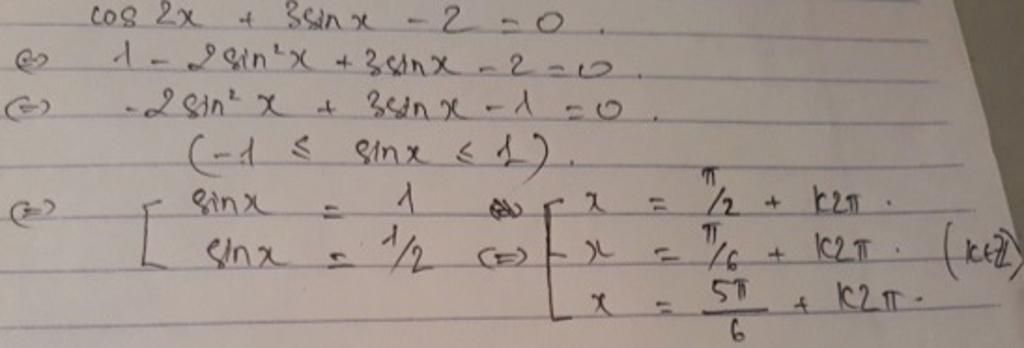 cos 2x + 3sinx - 2 = 0.
⇔ 1 - 2sin²x + 3sinx - 2 = 0.
⇔ -2sin²x + 3sinx - 1 = 0.
(-1 ≤ sinx ≤ 1).
⇔ [ sinx = 1 [ x = π/2 + k2π.
sinx = 1/2 ⇔ x = π/6 + k2π. (k∈Z)
x = 5π/6 + k2π.